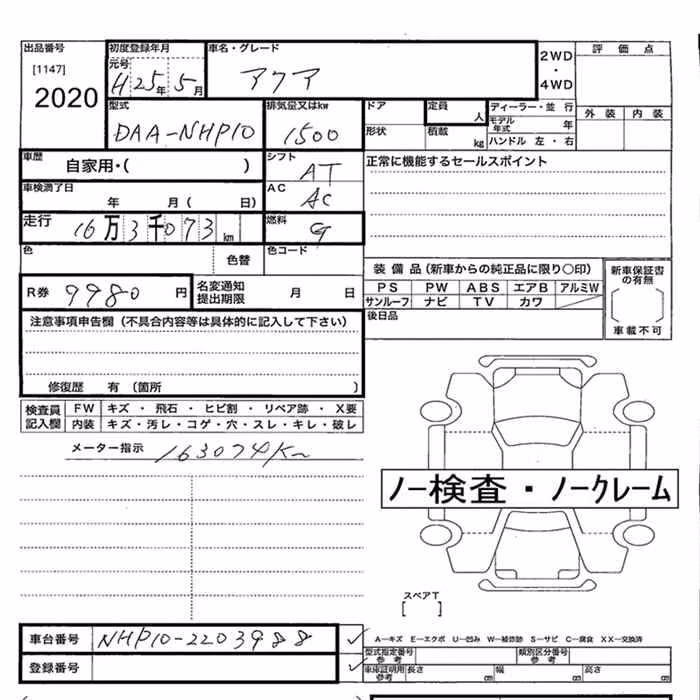 出品番号 初度登録年月 車名・グレード 2WD・4WD 評価点
[1147] 元号 H25年5月 アクア
2020 外装 内装
型式 排気量又はkw ドア 定員 人 ディーラー・並行
DAA-NHP10 1500 モデル年式 年
形状 積載 kg ハンドル 左・右
車歴 自家用・( ) シフト AT 正常に機能するセールスポイント
車検満了日 年 月( 日) AC AC
走行 16万3千073km 燃料 G
色 色替 色コード
装備品(新車からの純正品に限り〇印) 新車保証書の有無
R券 9980円 名変通知提出期限 月 日 PS PW ABS エアB アルミW
サンルーフ ナビ TV カワ
後日品 車載不可
注意事項申告欄(不具合内容等は具体的に記入して下さい)
修復歴 有(箇所 )
検査員記入欄 FW キズ・飛石・ヒビ割・リペア跡・X要
内装 キズ・汚レ・コゲ・穴・スレ・キレ・破レ
メーター指示 163074Km
ノー検査・ノークレーム
スペアT
[ ]
車台番号 NHP10-2203988 A-キズ E-エクボ U-凹ミ W-補修跡 S-サビ C-腐食 XX-交換済
型式指定番号 参考 類別区分番号 参考
登録番号 車庫証明用 参考 長さ cm 幅 cm 高さ cm